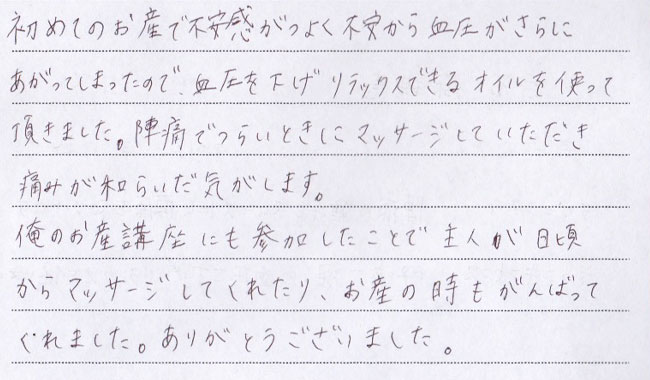 初めてのお産で不安感がつよく不安から血圧がさらに
あがってしまったので、血圧を下げリラックスできるオイルを使って
頂きました。陣痛でつらいときにマッサージしていただき
痛みが和らいだ気がします。
俺のお産講座にも参加したことで主人が日頃
からマッサージしてくれたり、お産の時もがんばって
くれました。ありがとうございました。